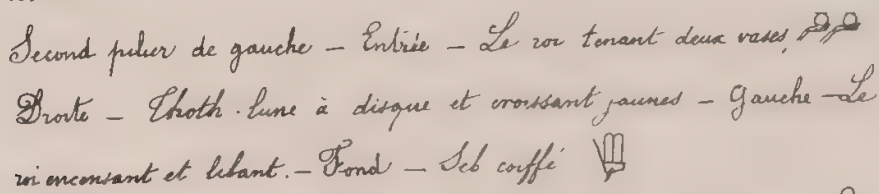 Second pilier de gauche – Entrée – Le roi tenant deux vases
Droite – Thoth-lune à disque et croissant jaunes – Gauche – Le
roi encensant et libant. – Fond – Seb coiffé